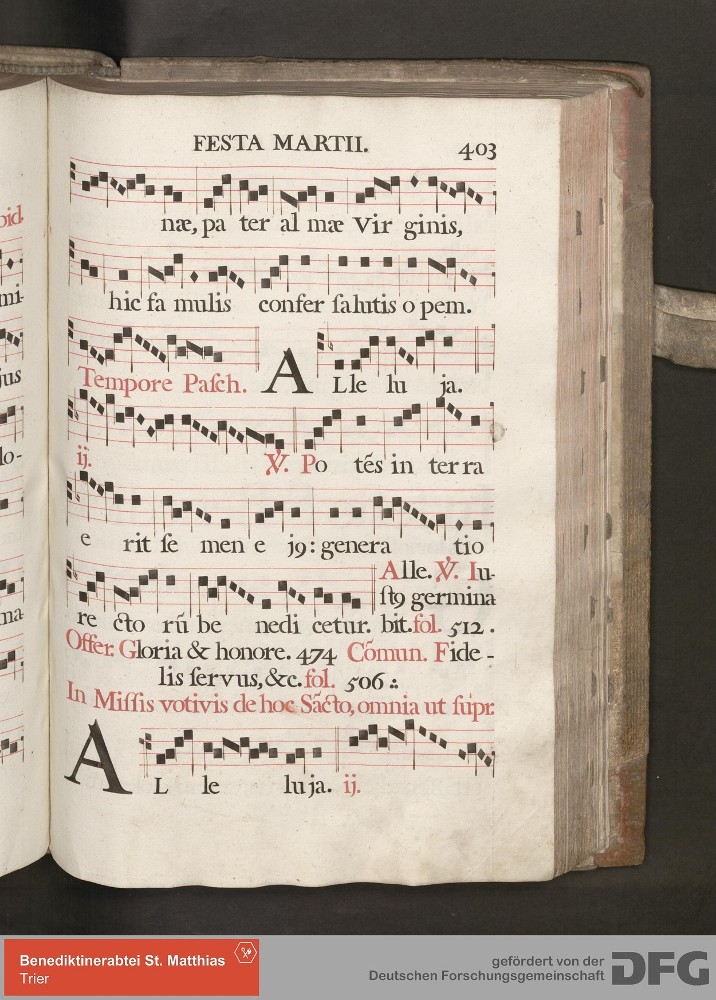 FESTA MARTII. 403
næ, pa ter al mæ Vir ginis,
hic fa mulis confer ſalutis o pem.
Tempore Paſch. A Lle lu ja.
ij. ℣. Po tẽs in ter ra
e rit ſe men e jꝰ: genera tio
Alle. ℣. Iu-
ſtꝰ germina
re cto rũ be nedi cetur. bit. fol. 512.
Offer. Gloria & honore. 474 Cõmun. Fide-
lis ſervus, &c. fol. 506 :.
In Miſſis votivis de hoc Sãcto, omnia ut ſupr.
A L le luja. ij.
bid.
mi-
jus
lo-
ma-
Benediktinerabtei St. Matthias
Trier
gefördert von der
Deutschen Forschungsgemeinschaft DFG